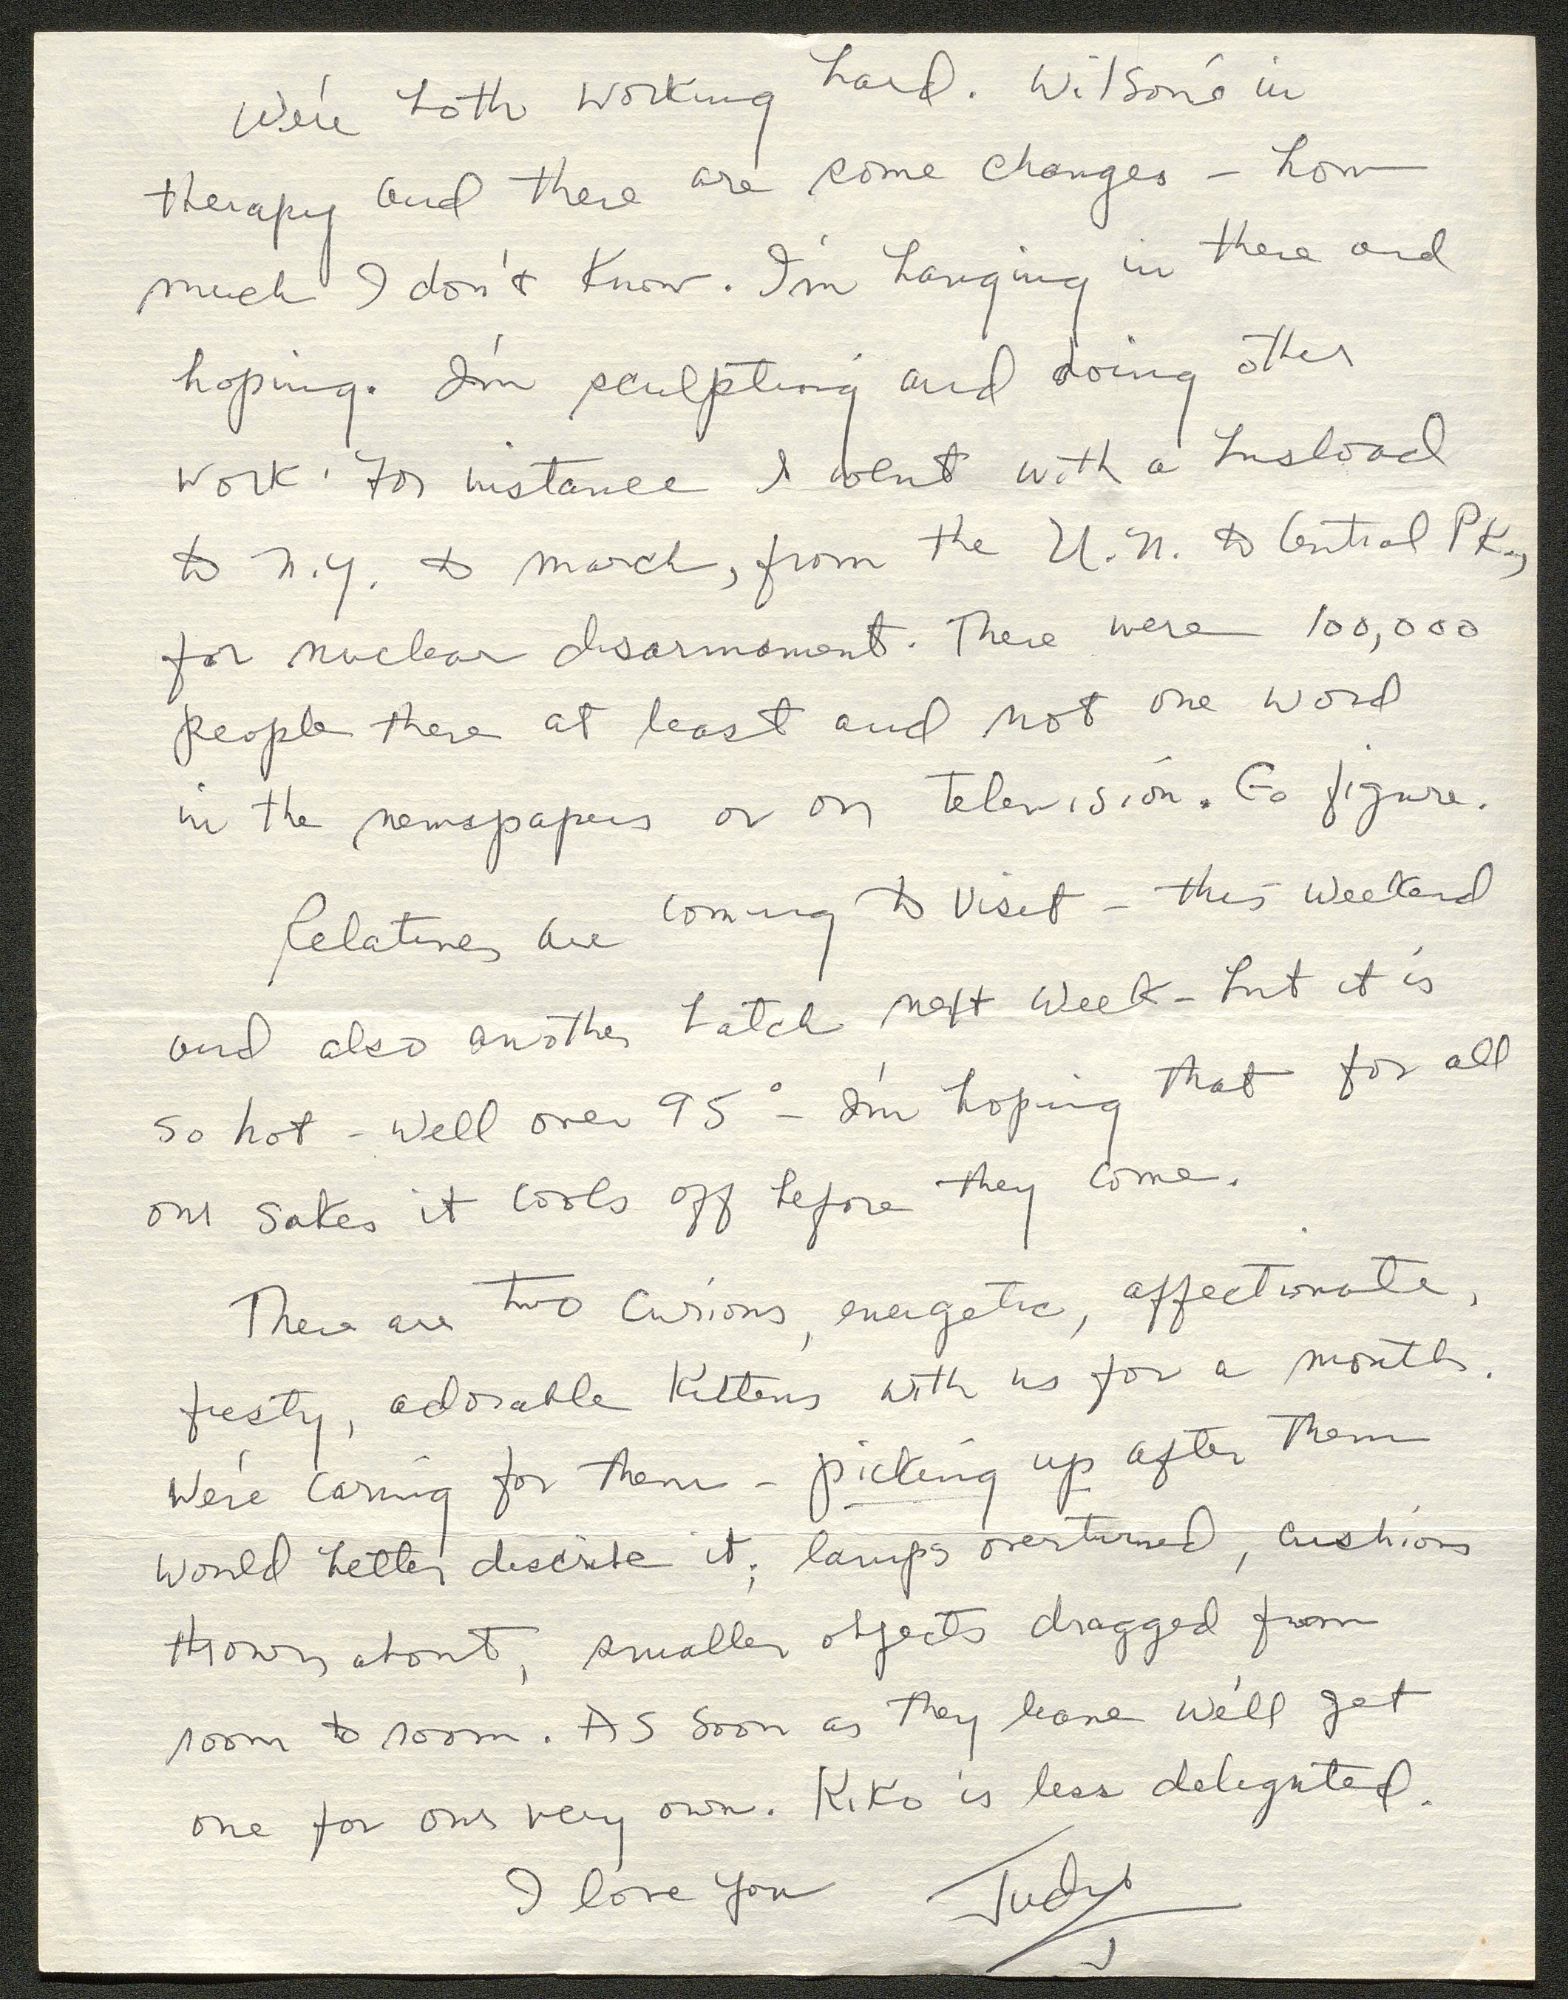 We're both working hard. Wilson's in
therapy and there are some changes – how
much I don't know. I'm hanging in there and
hoping. I'm sculpting and doing other
work. For instance I went with a busload
to N.Y. to march, from the U.N. to Central Pk.,
for nuclear disarmament. There were 100,000
people there at least and not one word
in the newspapers or on television. Go figure.
Relatives are coming to visit – this weekend
and also another batch next week – but it is
so hot – well over 95° – I'm hoping that for all
our sakes it cools off before they come.
There are two curious, energetic, affectionate,
fiesty, adorable kittens with us for a month.
We're caring for them – picking up after them
would better describe it; lamps overturned, cushions
thrown about, smaller objects dragged from
room to room. As soon as they leave we'll get
one for our very own. Kiko is less delighted.
I love you Judy